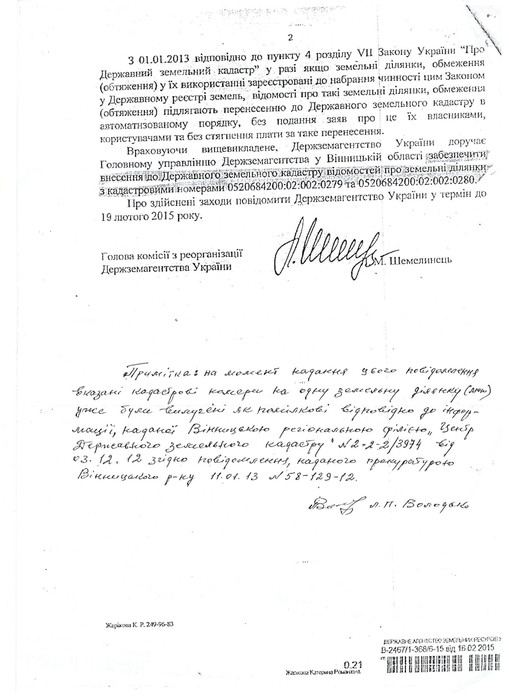 2
З 01.01.2013 відповідно до пункту 4 розділу VII Закону України "Про
Державний земельний кадастр" у разі якщо земельні ділянки, обмеження
(обтяження) у їх використанні зареєстровані до набрання чинності цим Законом
у Державному реєстрі земель, відомості про такі земельні ділянки, обмеження
(обтяження) підлягають перенесенню до Державного земельного кадастру в
автоматизованому порядку, без подання заяв про це їх власниками,
користувачами та без стягнення плати за таке перенесення.
Враховуючи вищевикладене, Держземагентство України доручає
Головному управлінню Держземагентства у Вінницькій області забезпечити
внесення до Державного земельного кадастру відомостей про земельні ділянки
з кадастровими номерами 0520684200:02:002:0279 та 0520684200:02:002:0280.
Про здійснені заходи повідомити Держземагентство України у термін до
19 лютого 2015 року.
Голова комісії з реорганізації
Держземагентства України
М. Шемелинець
Примітка: на момент надання цього повідомлення
вказані кадастрові номери на одну земельну ділянку
уже були вилучені як помилкові відповідно до інфор-
мації, наданої Вінницькою регіональною філією „Центр
Державного земельного кадастру" №2-2-2/3974 від
03.12.12 згідно повідомлення, наданого прокуратурою
Вінницького р-ну 11.01.13 №58-129-12.
Л.П. Володько
Жарікова К. Р. 249-96-83
ДЕРЖАВНЕ АГЕНТСТВО ЗЕМЕЛЬНИХ РЕСУРСІВ У
В-2467/1-368/6-15 від 16.02.2015
0.21
Жарікова Катерина Романівна